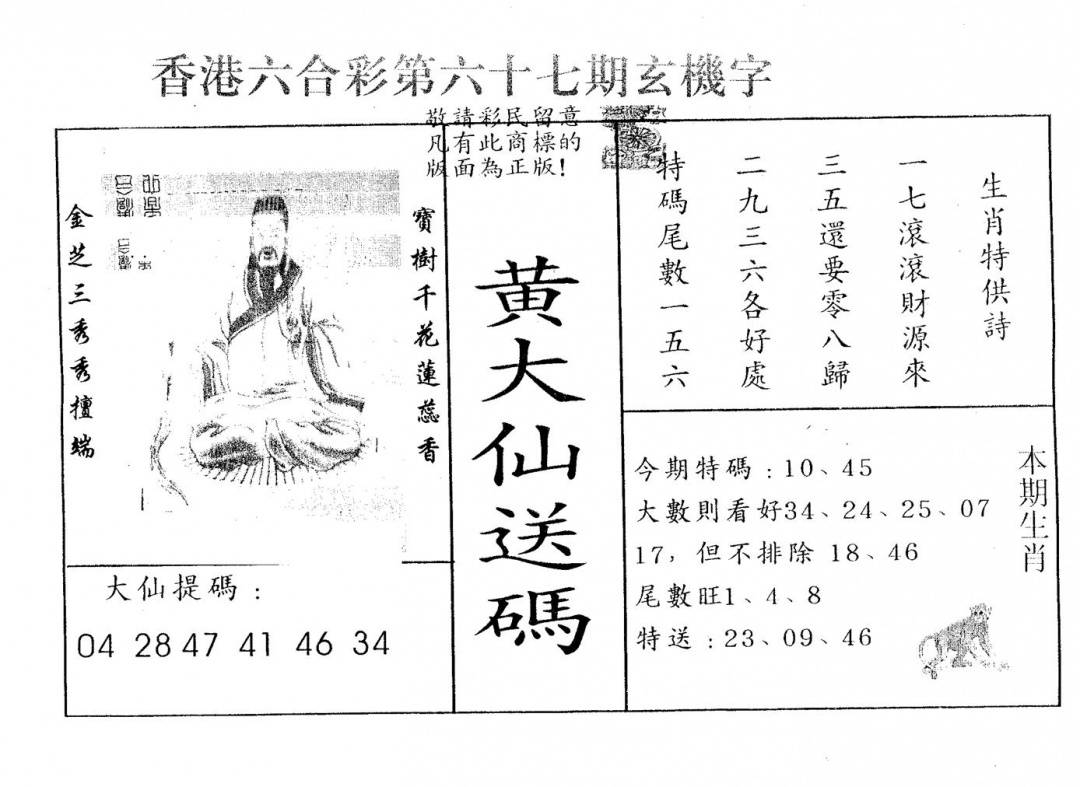 香港六合彩第六十七期玄機字
敬請彩民留意
凡有此商標的
版面為正版!
金芝三秀秀擅端
寶樹千花蓮蕊香
大仙提碼:
04 28 47 41 46 34
黃大仙送碼
生肖特供詩
一七滾滾財源來
三五還要零八歸
二九三六各好處
特碼尾數一五六
今期特碼:10、45
大數則看好34、24、25、07
17,但不排除 18、46
尾數旺1、4、8
特送:23、09、46
本期生肖